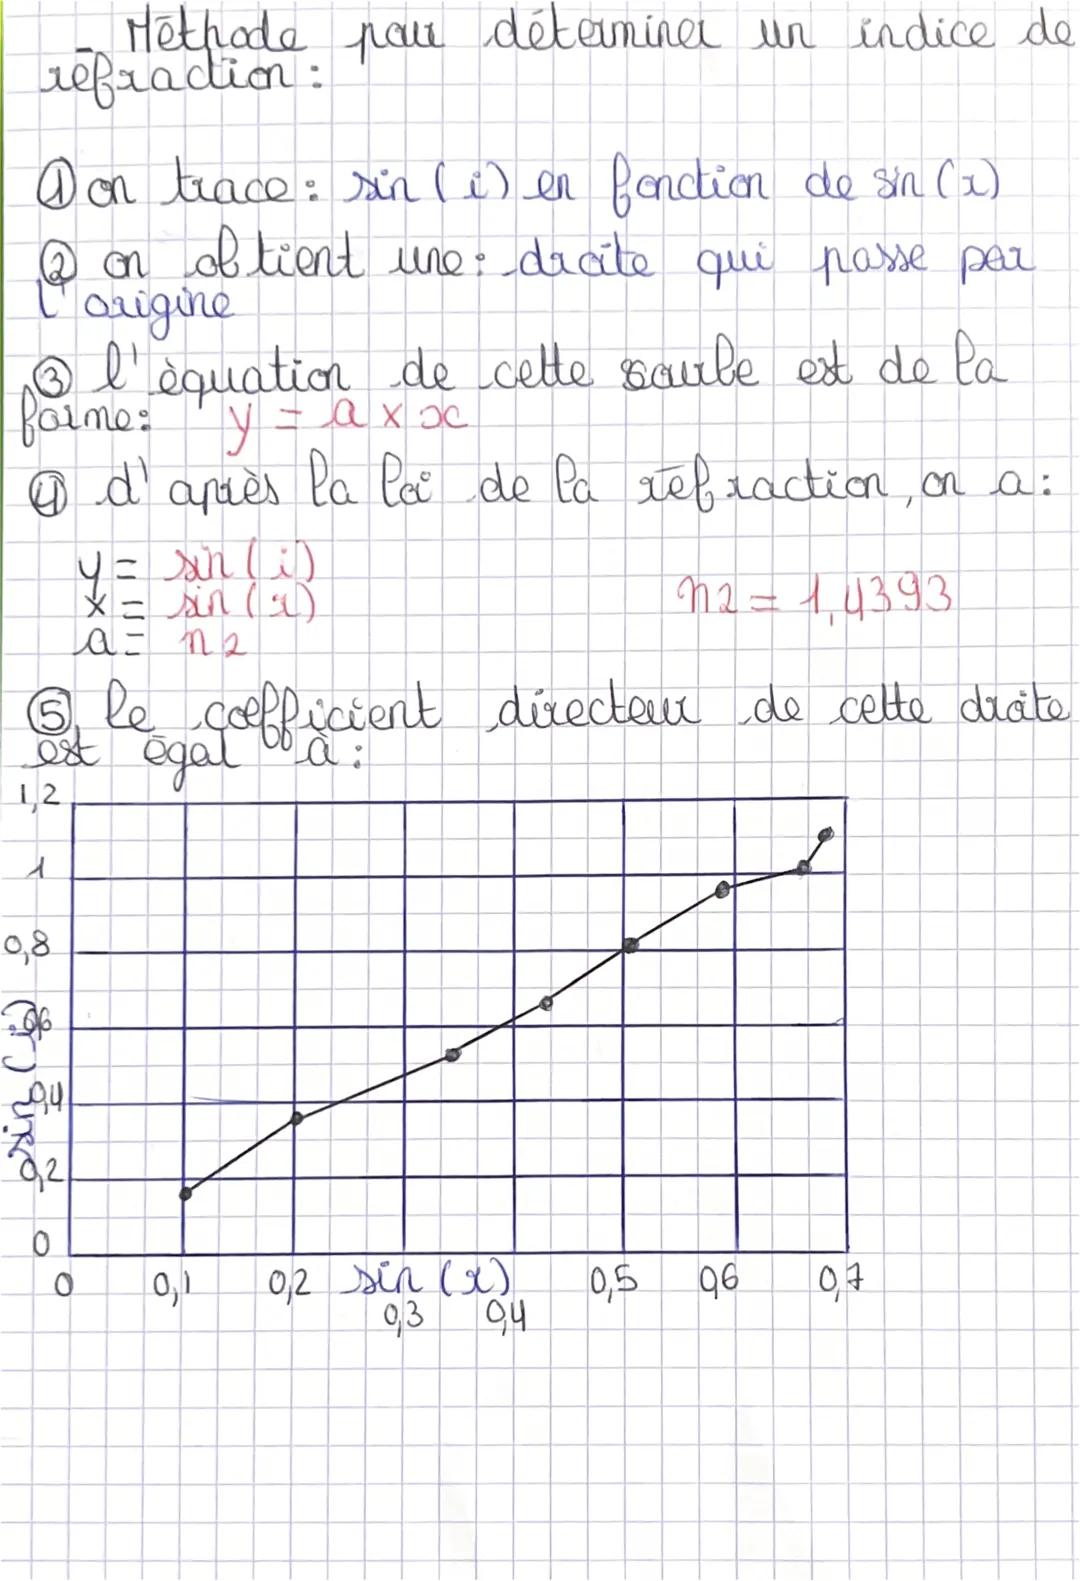 - Méthode pour déterminer un indice de
réfraction :
① on trace : sin (i) en fonction de sin (r)
② on obtient une : droite qui passe par
l'origine
③ l'équation de cette courbe est de la
forme : y = a x x
④ d'après la loi de la réfraction, on a :
y = sin (i)
x = sin (r)
n2 = 1,4393
a = n2
⑤ le coefficient directeur de cette droite
est égal à :
1,2
1
0,8
0,6
0,4
0,2
0
sin (i)
0 0,1 0,2 sin (r) 0,5 0,6 0,7
0,3 0,4